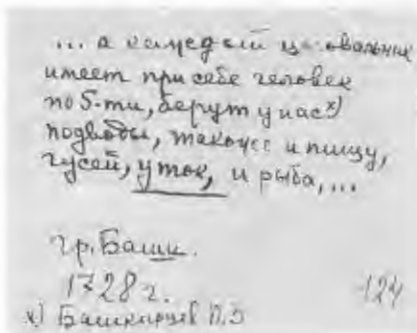 ... а каждой целовальник
имеет при себе человек
по 5-ти, берут у нас х)
подводы, такоже и пищу,
гусей, уток, и рыба, ...
гр. Башк.
1728 г.
124
х) Башкирцев П.Э